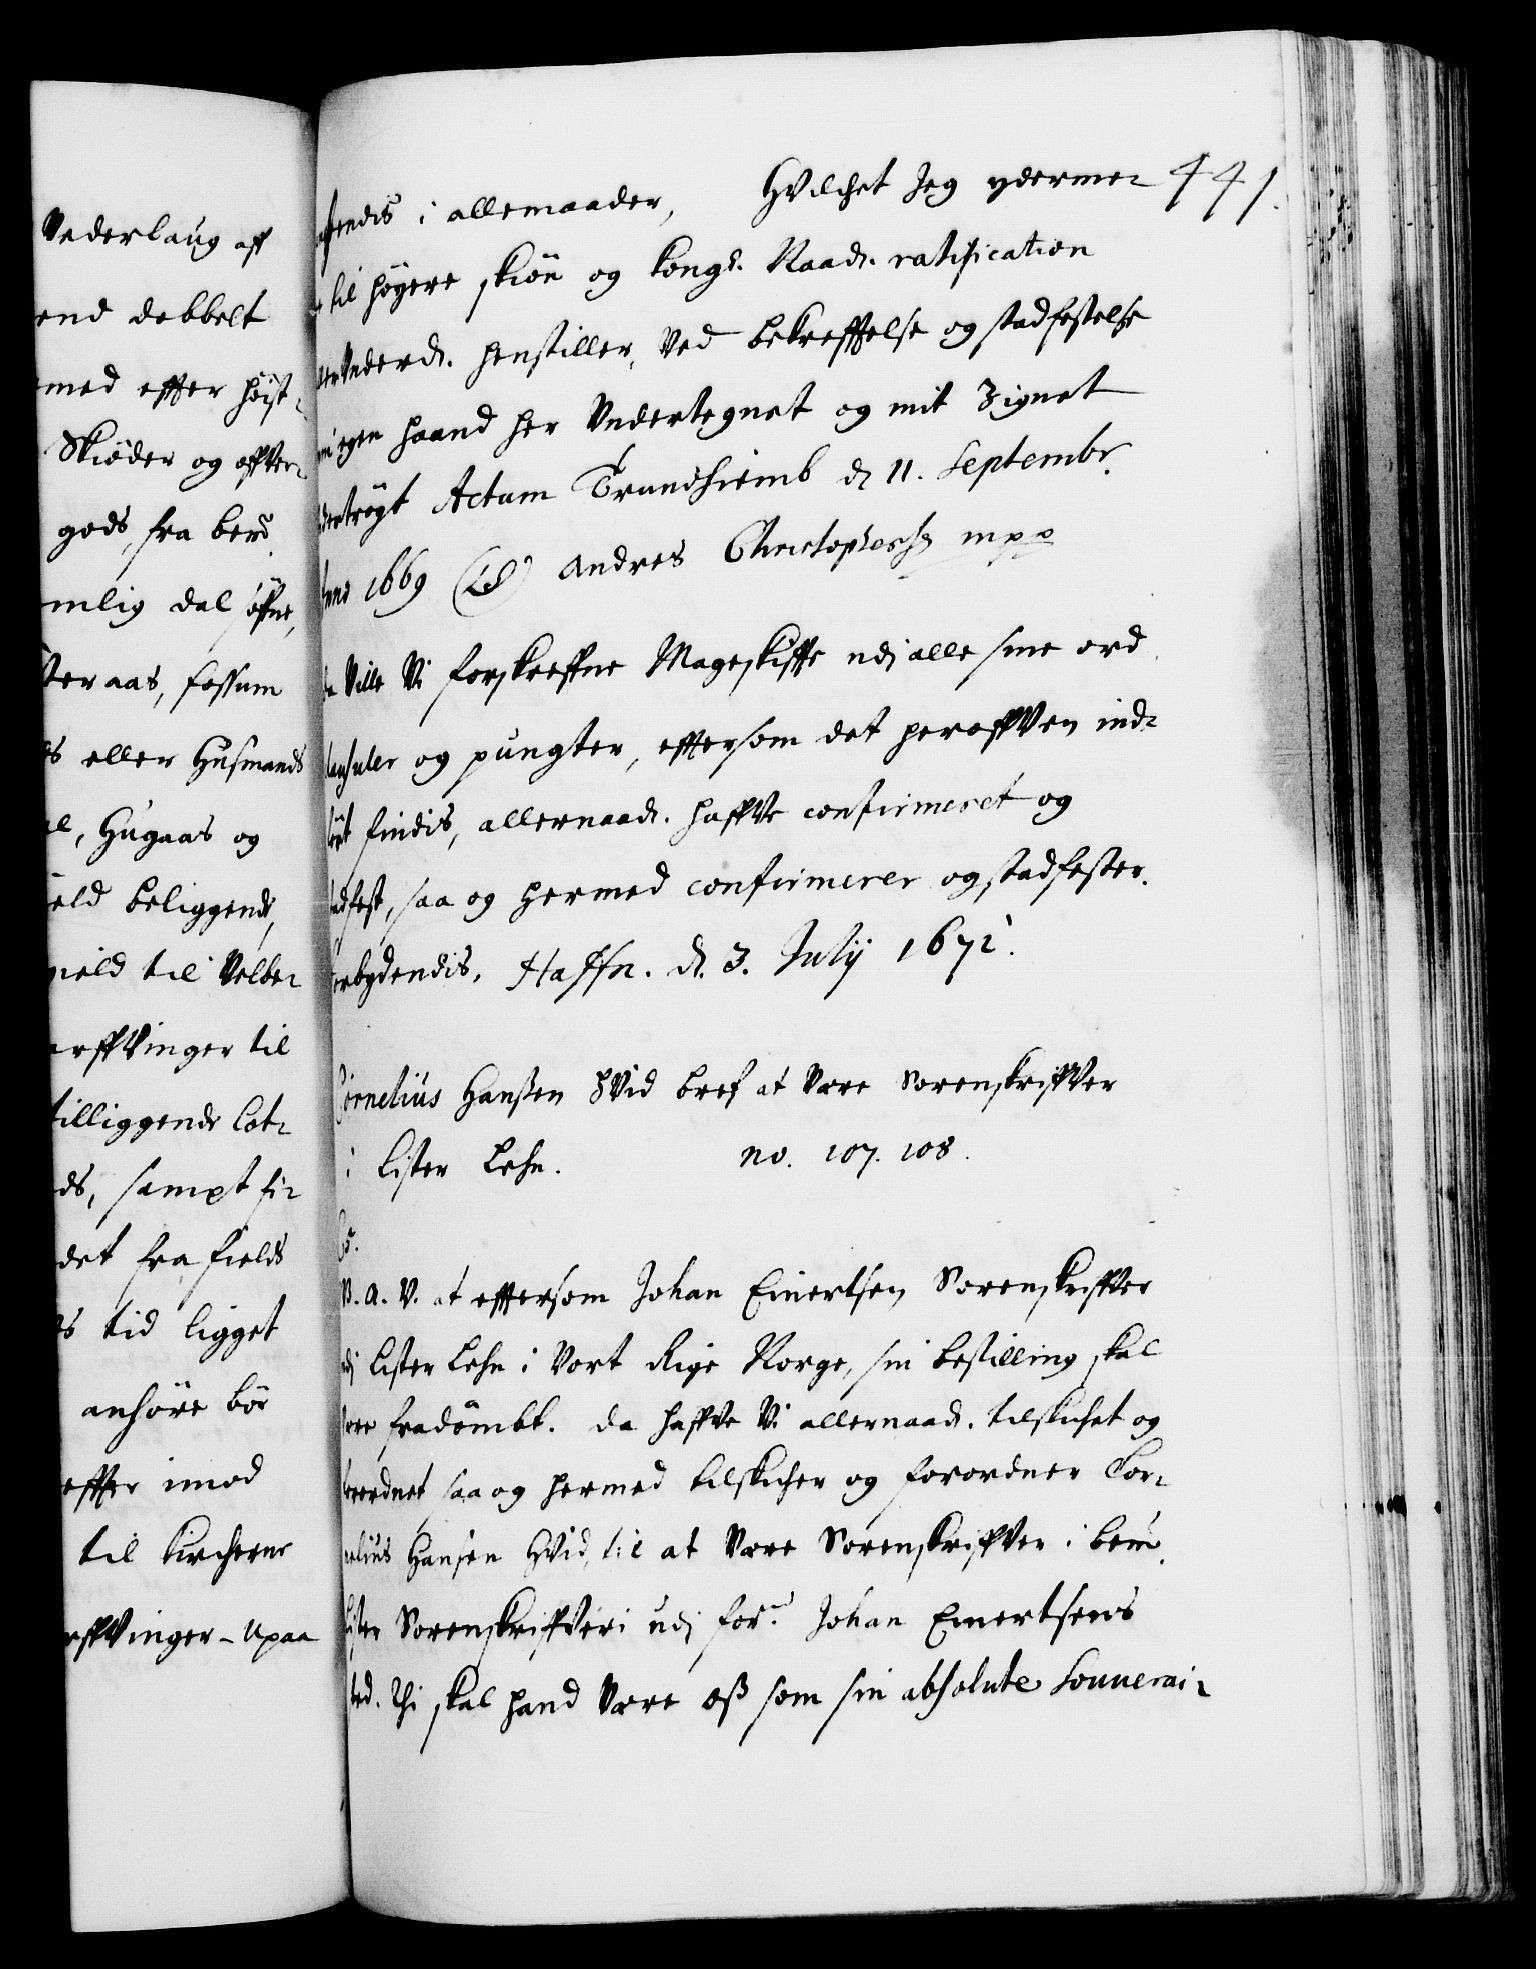 Vederlaug aff
end dobbelt
med effter høist-
Skiøder og offver-
gods, fra berd
mlig dal øffne,
teraas, fossum
s eller Husmands
el, Hugaas og
eld beliggende,
gield til Velbe-
arffVinger til
tilliggende Lot-
ds, sampt fi-
det fra fields
s tid ligget
anhøre bør
effter imod
til kircherne
rffVinger – Upaa
441.
endis i allemaader, Hvilchet Jeg yderme-
til høyere skiøn og kongl. Naads. ratification
underd. henstiller, Ved bekrefftelse og stadfestelse
egen haand her Undertegnet og mit Zignet
trøgt Actum Trundhiemb d 11. Septembr.
Anno 1669 (LS) Andres Christophersø mpp
da Ville Vi forskreffne Mageskiffte udj alle sine ord
Clausuler og pungter, efftersom det heroffVen ind-
ført findis, allernaad. haffVe confirmeret og
stadfest, saa og hermed confirmerer og stadfester.
Forbydendis, Haffn. d. 3. Julij 1672.
Cornelius Hanßen HVid bref at Være SorenskriffVer
i Lister Lehn. no. 107. 108.
C5.
V. A. V. at efftersom Johan Einertsen SorenskriffVer
udj Lister Lehn i Vort Rige Norge, sin bestilling skal
Være fradømbt. da haffVe Vi allernaad. tilskichet og
forordnet saa og hermed tilskicher og forordner Cor-
nelius Hansen HVid, til at Være SorenskriffVer i bemt.
Lister SorenskriffVeri udj for. Johan Einertsens
sted. Thi skal hand Være oß som sin absolute Souverai-